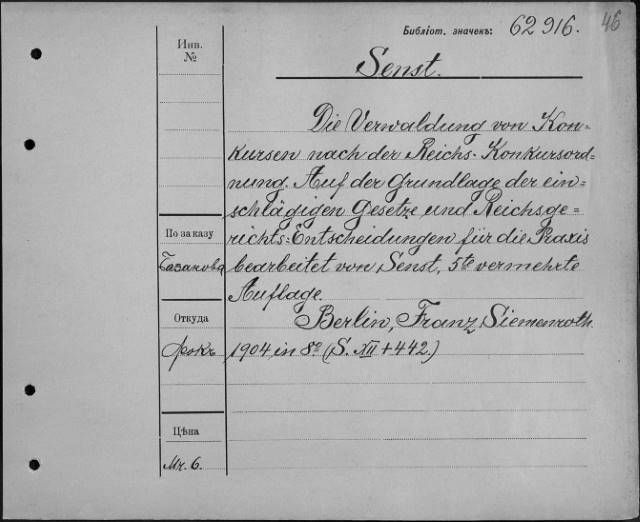 Библіот. значекъ: 62 916.
46
Инв.
№
Senst.
Die Verwaldung von Kon=
kursen nach der Reichs-Konkursord=
nung. Auf der Grundlage der ein=
schlägigen Gesetze und Reichsge=
richts=Entscheidungen für die Praxis
bearbeitet von Senst, 5te vermehrte
Auflage.
Berlin, Franz Siemenroth.
1904 in 8º (S. XII + 442.)
По заказу
Базанова
Откуда
Рокъ
Цѣна
Mr. 6.